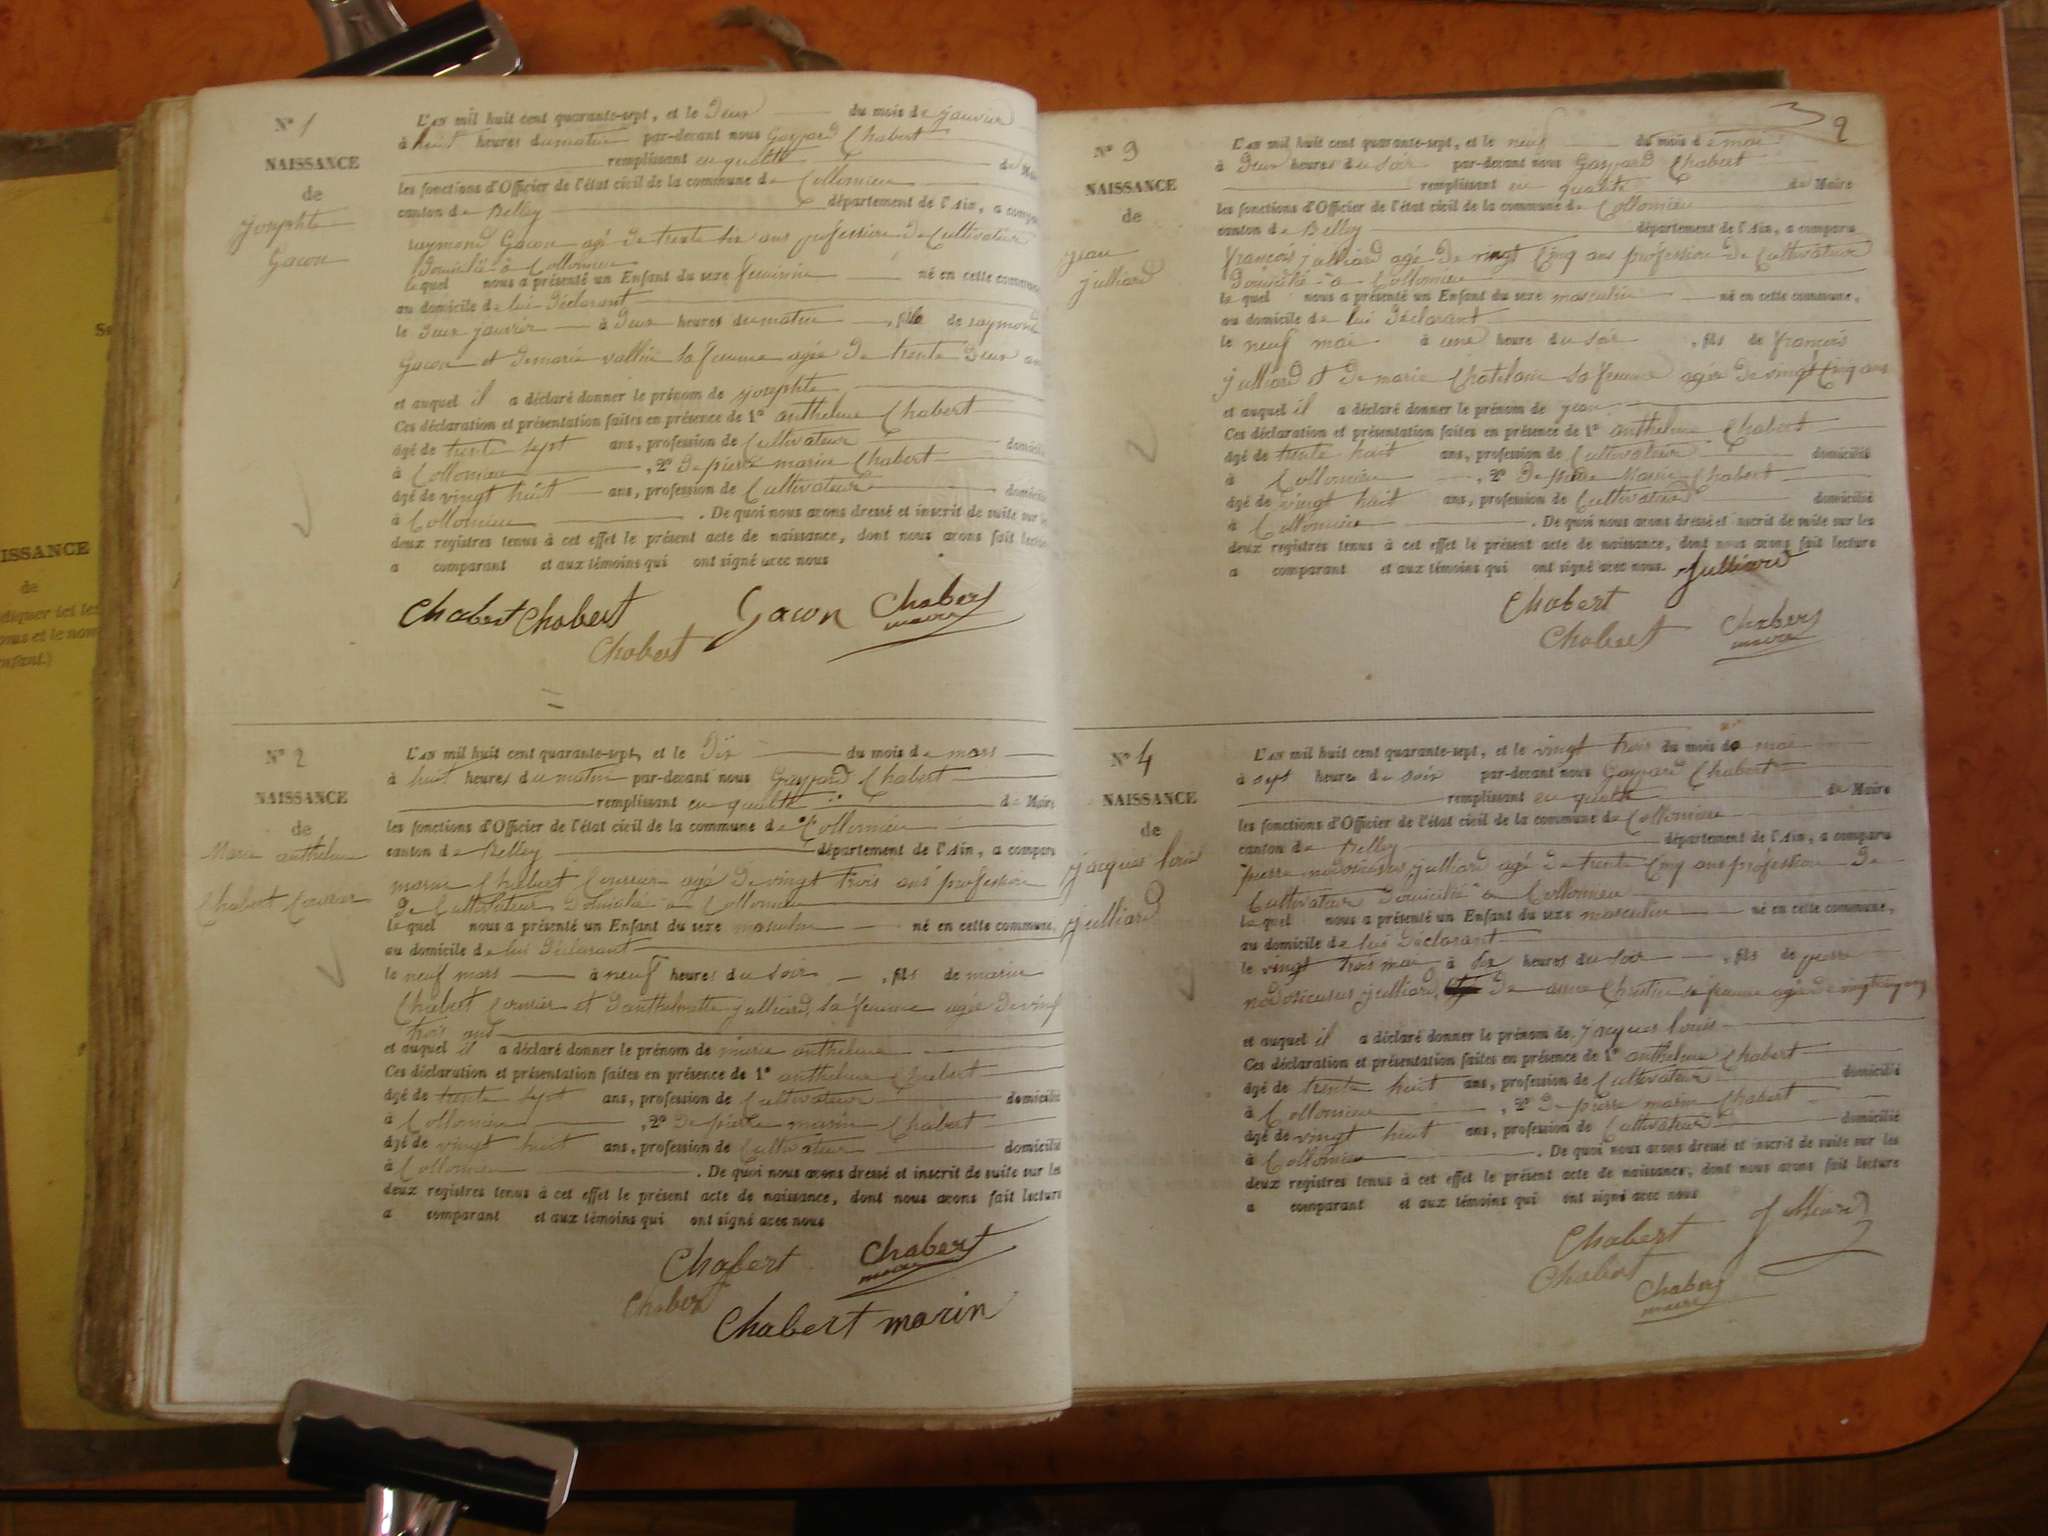 ISSANCE
de
diquer ici les
noms et le nom
enfant.)
N° 1
NAISSANCE
de
josephte
Gacon
L'AN mil huit cent quarante-sept, et le Deux du mois de janvier
à huit heures du matin par-devant nous Gaspard Chabert
remplissant en qualité de Maire
les fonctions d'Officier de l'état civil de la commune de Collomieu
canton de Belley département de l'Ain, a comparu
raymond Gacon agé de trente six ans profession de Cultivateur
Domicilié à Collomieu
le quel nous a présenté un Enfant du sexe feminin né en cette commune
au domicile de lui Déclarant
le Deux janvier à Deux heures du matin , fille de raymond
Gacon et de marie vallin sa femme agée de trente Deux ans
et auquel il a déclaré donner le prénom de josephte
Ces déclaration et présentation faites en présence de 1° anthelme Chabert
âgé de trente sept ans, profession de Cultivateur domicilié
à Collomieu , 2° De pierre marin Chabert
âgé de vingt huit ans, profession de Cultivateur domicilié
à Collomieu . De quoi nous avons dressé et inscrit de suite sur les
deux registres tenus à cet effet le présent acte de naissance, dont nous avons fait lecture
a comparant et aux témoins qui ont signé avec nous
Chabert Chabert Gacon Chabert
maire
Chabert
N° 2
NAISSANCE
de
Marie anthelme
Chabert Courrier
L'AN mil huit cent quarante-sept, et le Dix du mois de mars
à huit heures du matin par-devant nous Gaspard Chabert
remplissant en qualité de Maire
les fonctions d'Officier de l'état civil de la commune de Collomieu
canton de Belley département de l'Ain, a comparu
marin Chabert Courrier agé de vingt trois ans profession
De Cultivateur Domicilié à Collomieu
le quel nous a présenté un Enfant du sexe masculin né en cette commune,
au domicile de lui Déclarant
le neuf mars à neuf heures du soir , fils de marin
Chabert Courrier et D'anthelmette julliard sa femme agée De vingt
trois ans
et auquel il a déclaré donner le prénom de marie anthelme
Ces déclaration et présentation faites en présence de 1° anthelme Chabert
âgé de trente sept ans, profession de Cultivateur domicilié
à Collomieu , 2° De pierre marin Chabert
âgé de vingt huit ans, profession de Cultivateur domicilié
à Collomieu . De quoi nous avons dressé et inscrit de suite sur les
deux registres tenus à cet effet le présent acte de naissance, dont nous avons fait lecture
a comparant et aux témoins qui ont signé avec nous
Chabert Chabert
maire
Chabert
Chabert marin
2
N° 3
NAISSANCE
de
jean
julliard
L'AN mil huit cent quarante-sept, et le neuf du mois de mai
à Deux heures du soir par-devant nous Gaspard Chabert
remplissant en qualité de Maire
les fonctions d'Officier de l'état civil de la commune de Collomieu
canton de Belley département de l'Ain, a comparu
françois julliard agé De vingt Cinq ans profession De Cultivateur
Domicilié à Collomieu
le quel nous a présenté un Enfant du sexe masculin né en cette commune,
au domicile de lui Déclarant
le neuf mai à une heure du soir , fils de françois
julliard et De marie Chatelain sa femme agée De vingt Cinq ans
et auquel il a déclaré donner le prénom de jean
Ces déclaration et présentation faites en présence de 1° anthelme Chabert
âgé de trente huit ans, profession de Cultivateur domicilié
à Collomieu , 2° De pierre Marin Chabert
âgé de vingt huit ans, profession de Cultivateur domicilié
à Collomieu . De quoi nous avons dressé et inscrit de suite sur les
deux registres tenus à cet effet le présent acte de naissance, dont nous avons fait lecture
a comparant et aux témoins qui ont signé avec nous. Julliard
Chabert
Chabert Chabert
maire
N° 4
NAISSANCE
de
jacques louis
julliard
L'AN mil huit cent quarante-sept, et le vingt trois du mois de mai
à sept heures du soir par-devant nous Gaspard Chabert
remplissant en qualité de Maire
les fonctions d'Officier de l'état civil de la commune de Collomieu
canton de Belley département de l'Ain, a comparu
pierre julliard agé De trente Cinq ans profession De
Cultivateur Domicilié à Collomieu
le quel nous a présenté un Enfant du sexe masculin né en cette commune,
au domicile de lui Déclarant
le vingt trois mai à six heures du soir , fils de pierre
julliard, De sa femme agée De vingt ans
et auquel il a déclaré donner le prénom de jacques louis
Ces déclaration et présentation faites en présence de 1° anthelme Chabert
âgé de trente huit ans, profession de Cultivateur domicilié
à Collomieu , 2° De pierre marin Chabert
âgé de vingt huit ans, profession de Cultivateur domicilié
à Collomieu . De quoi nous avons dressé et inscrit de suite sur les
deux registres tenus à cet effet le présent acte de naissance, dont nous avons fait lecture
a comparant et aux témoins qui ont signé avec nous
Chabert Julliard
Chabert
Chabert
maire